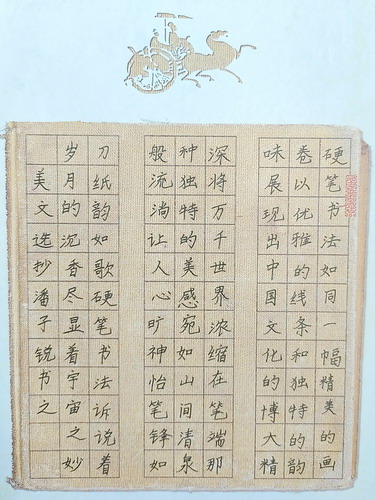 硬笔书法如同一幅精美的画
卷以优雅的线条和独特的韵
味展现出中国文化的博大精
深将万千世界浓缩在笔端那
种独特的美感宛如山间清泉
般流淌让人心旷神怡笔锋如
刀纸韵如歌硬笔书法诉说着
岁月的沉香尽显着宇宙之妙
美文选抄潘子锐书之